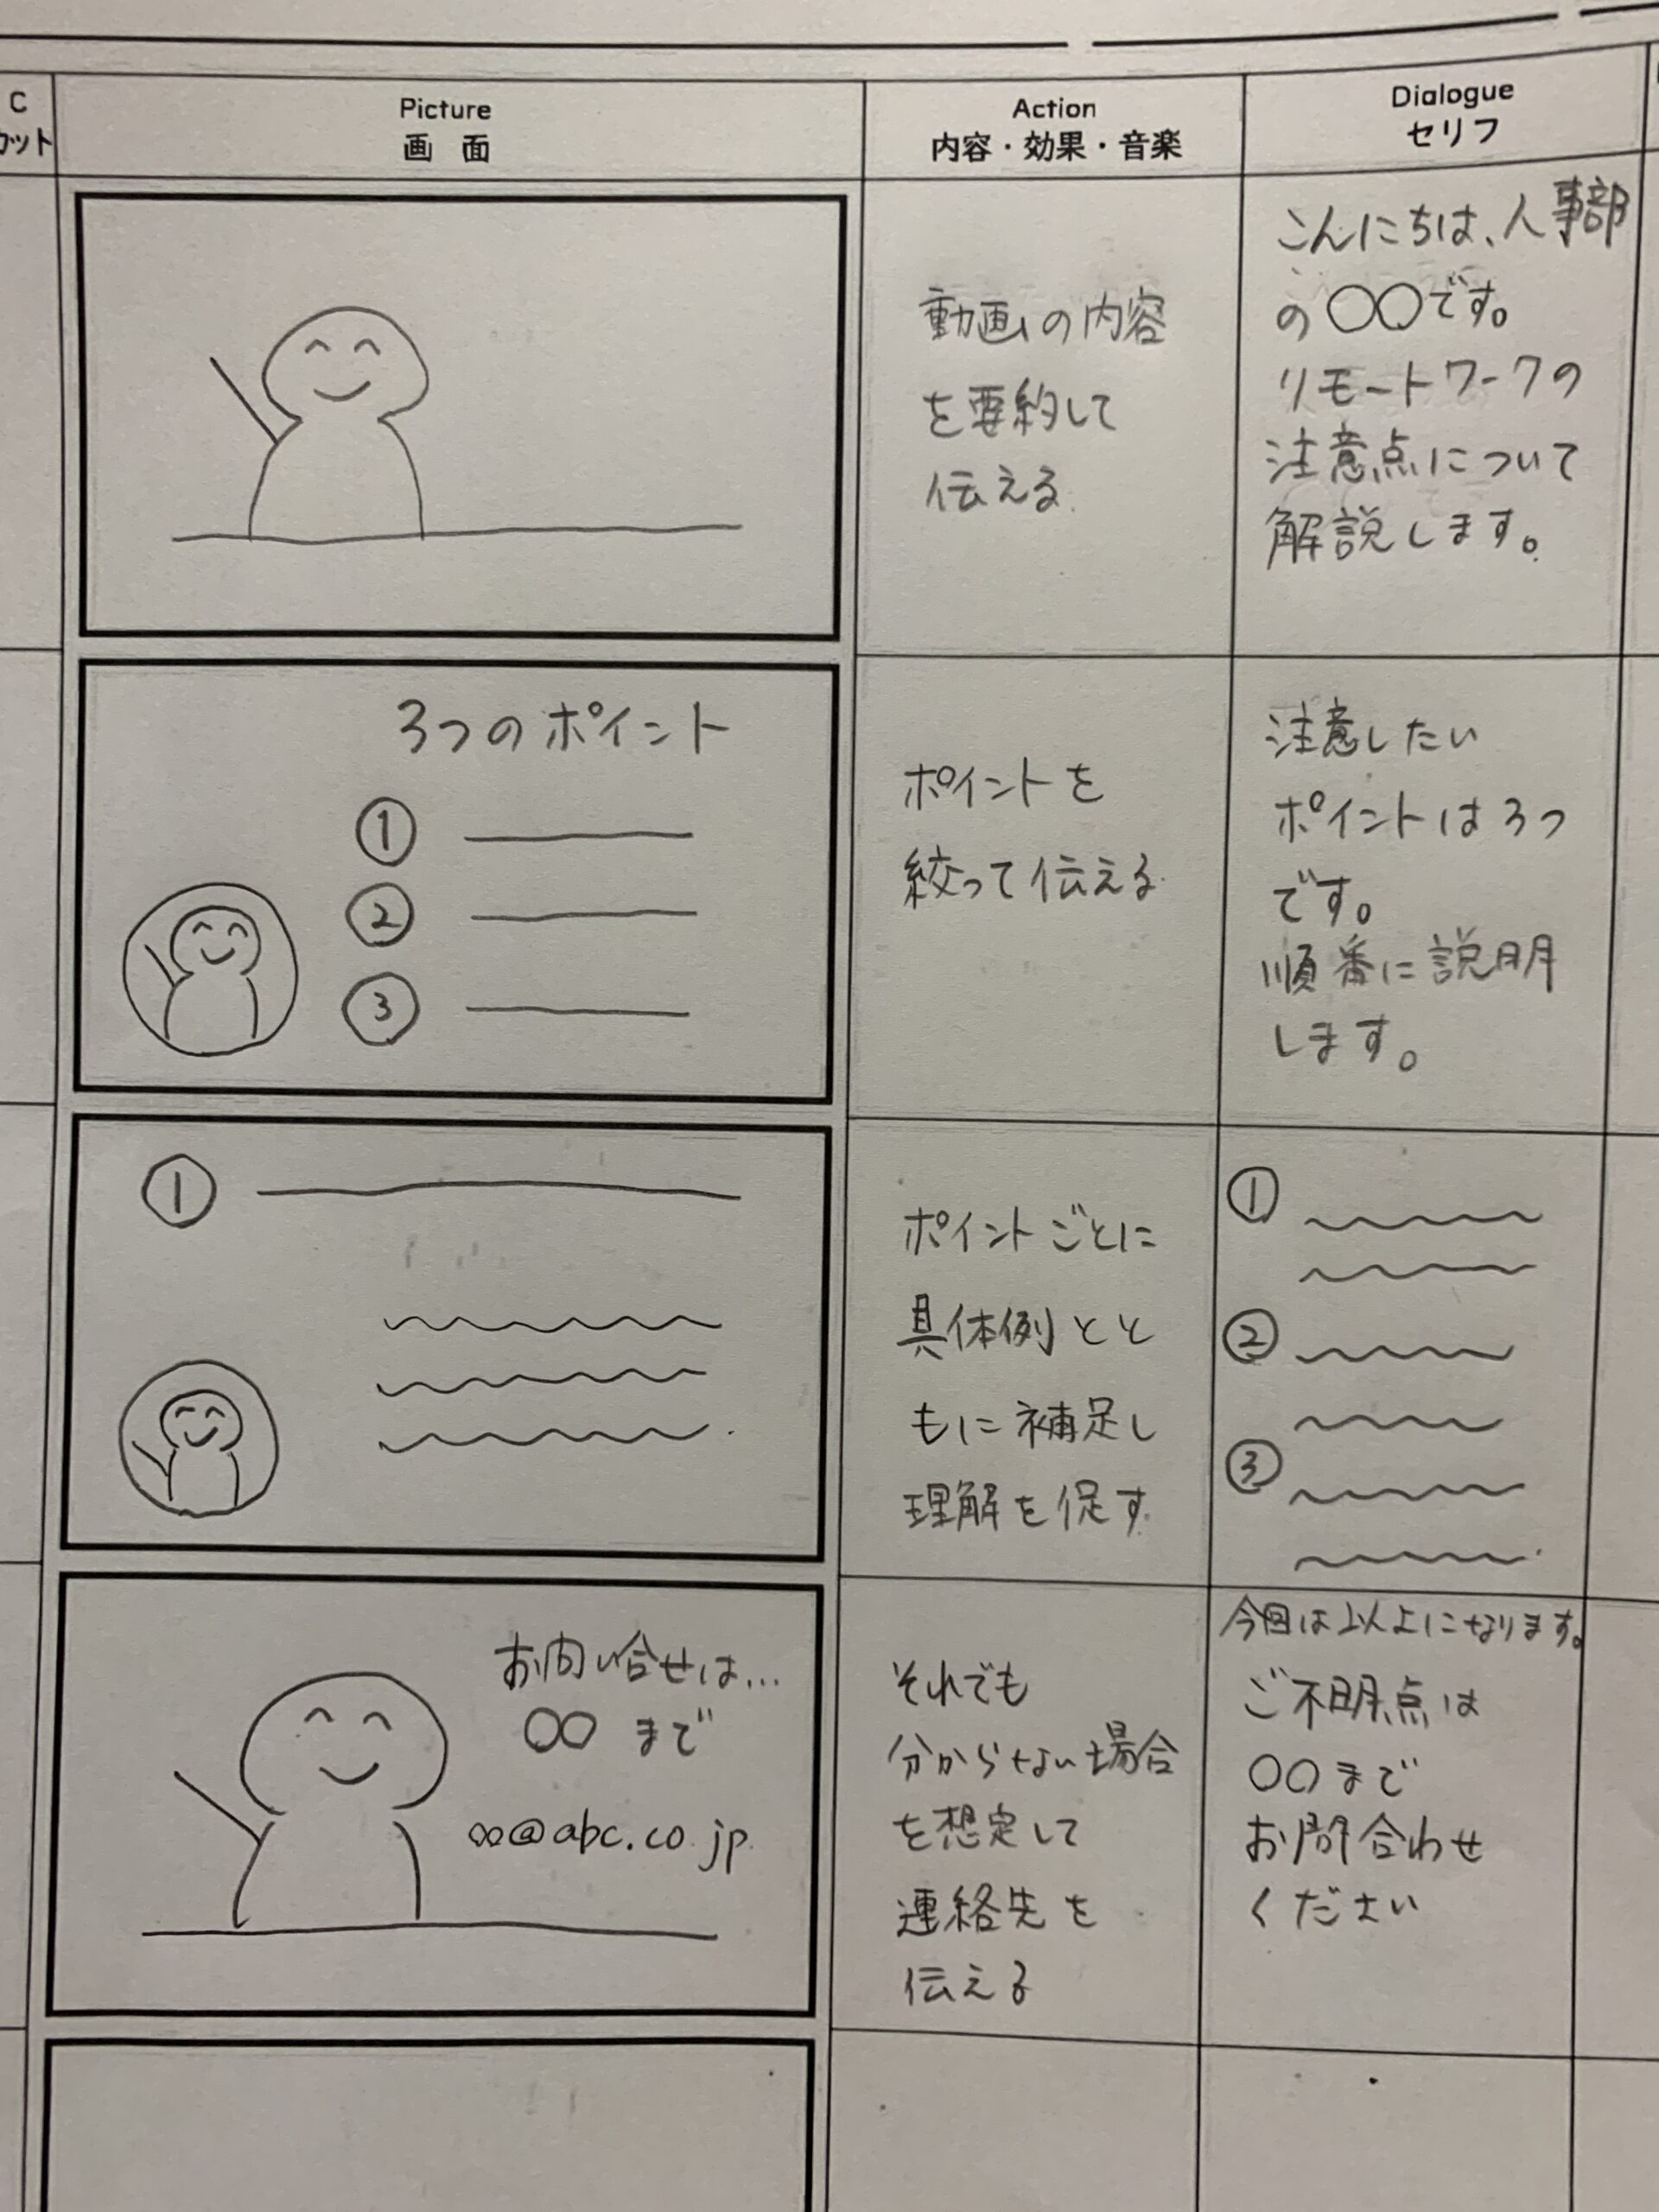 C
カット
Picture
画 面
Action
内容・効果・音楽
Dialogue
セリフ
動画の内容
を要約して
伝える
こんにちは、人事部
の〇〇です。
リモートワークの
注意点について
解説します。
3つのポイント
①
②
③
ポイントを
絞って伝える
注意したい
ポイントは3つ
です。
順番に説明
します。
①
ポイントごとに
具体例とと
もに補足し
理解を促す
①
②
③
お問い合せは…
〇〇 まで
∞@abc.co.jp
それでも
分からない場合
を想定して
連絡先を
伝える
今回は以上になります。
ご不明点は
〇〇まで
お問合わせ
ください